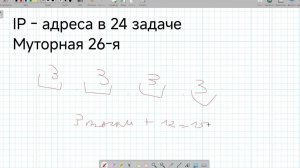 IP - адреса в 24 задаче
Муторная 26-я
3 3 3 3
3 + 12 = 15